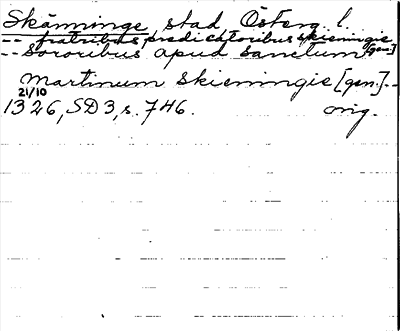 Skänninge, stad Österg. l.
-- fratribus predicatoribus skieningie [gen.]
-- sororibus apud sanctum
Martinum skieningie [gen.] --
21/10
1326, SD3, s. 746. orig.